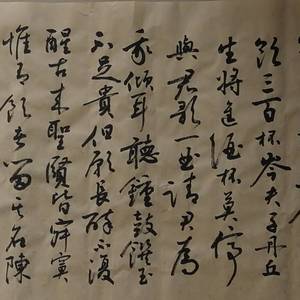 飲三百杯岑夫子丹丘
生將進酒杯莫停
與君歌一曲請君為
我傾耳聽鐘鼓饌玉
不足貴但願長醉不復
醒古來聖賢皆寂寞
惟有飲者留其名陳